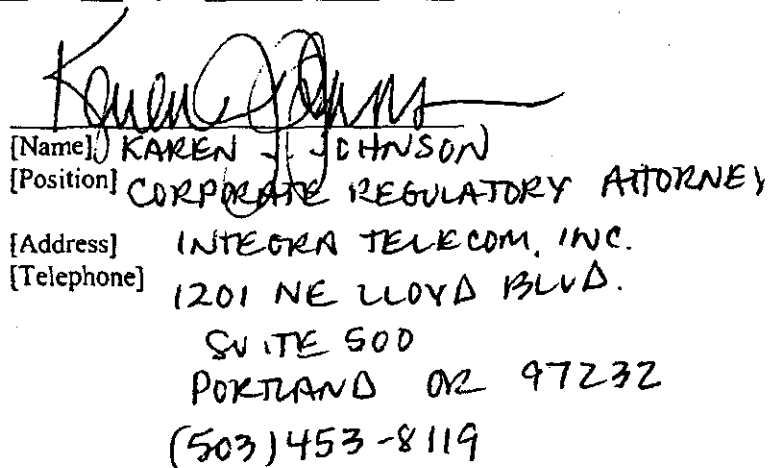 Karen J. Johnson
[Name] KAREN J. JOHNSON
[Position] CORPORATE REGULATORY ATTORNEY
[Address] INTEGRA TELECOM, INC.
[Telephone] 1201 NE LLOYD BLVD.
SUITE 500
PORTLAND OR 97232
(503) 453-8119